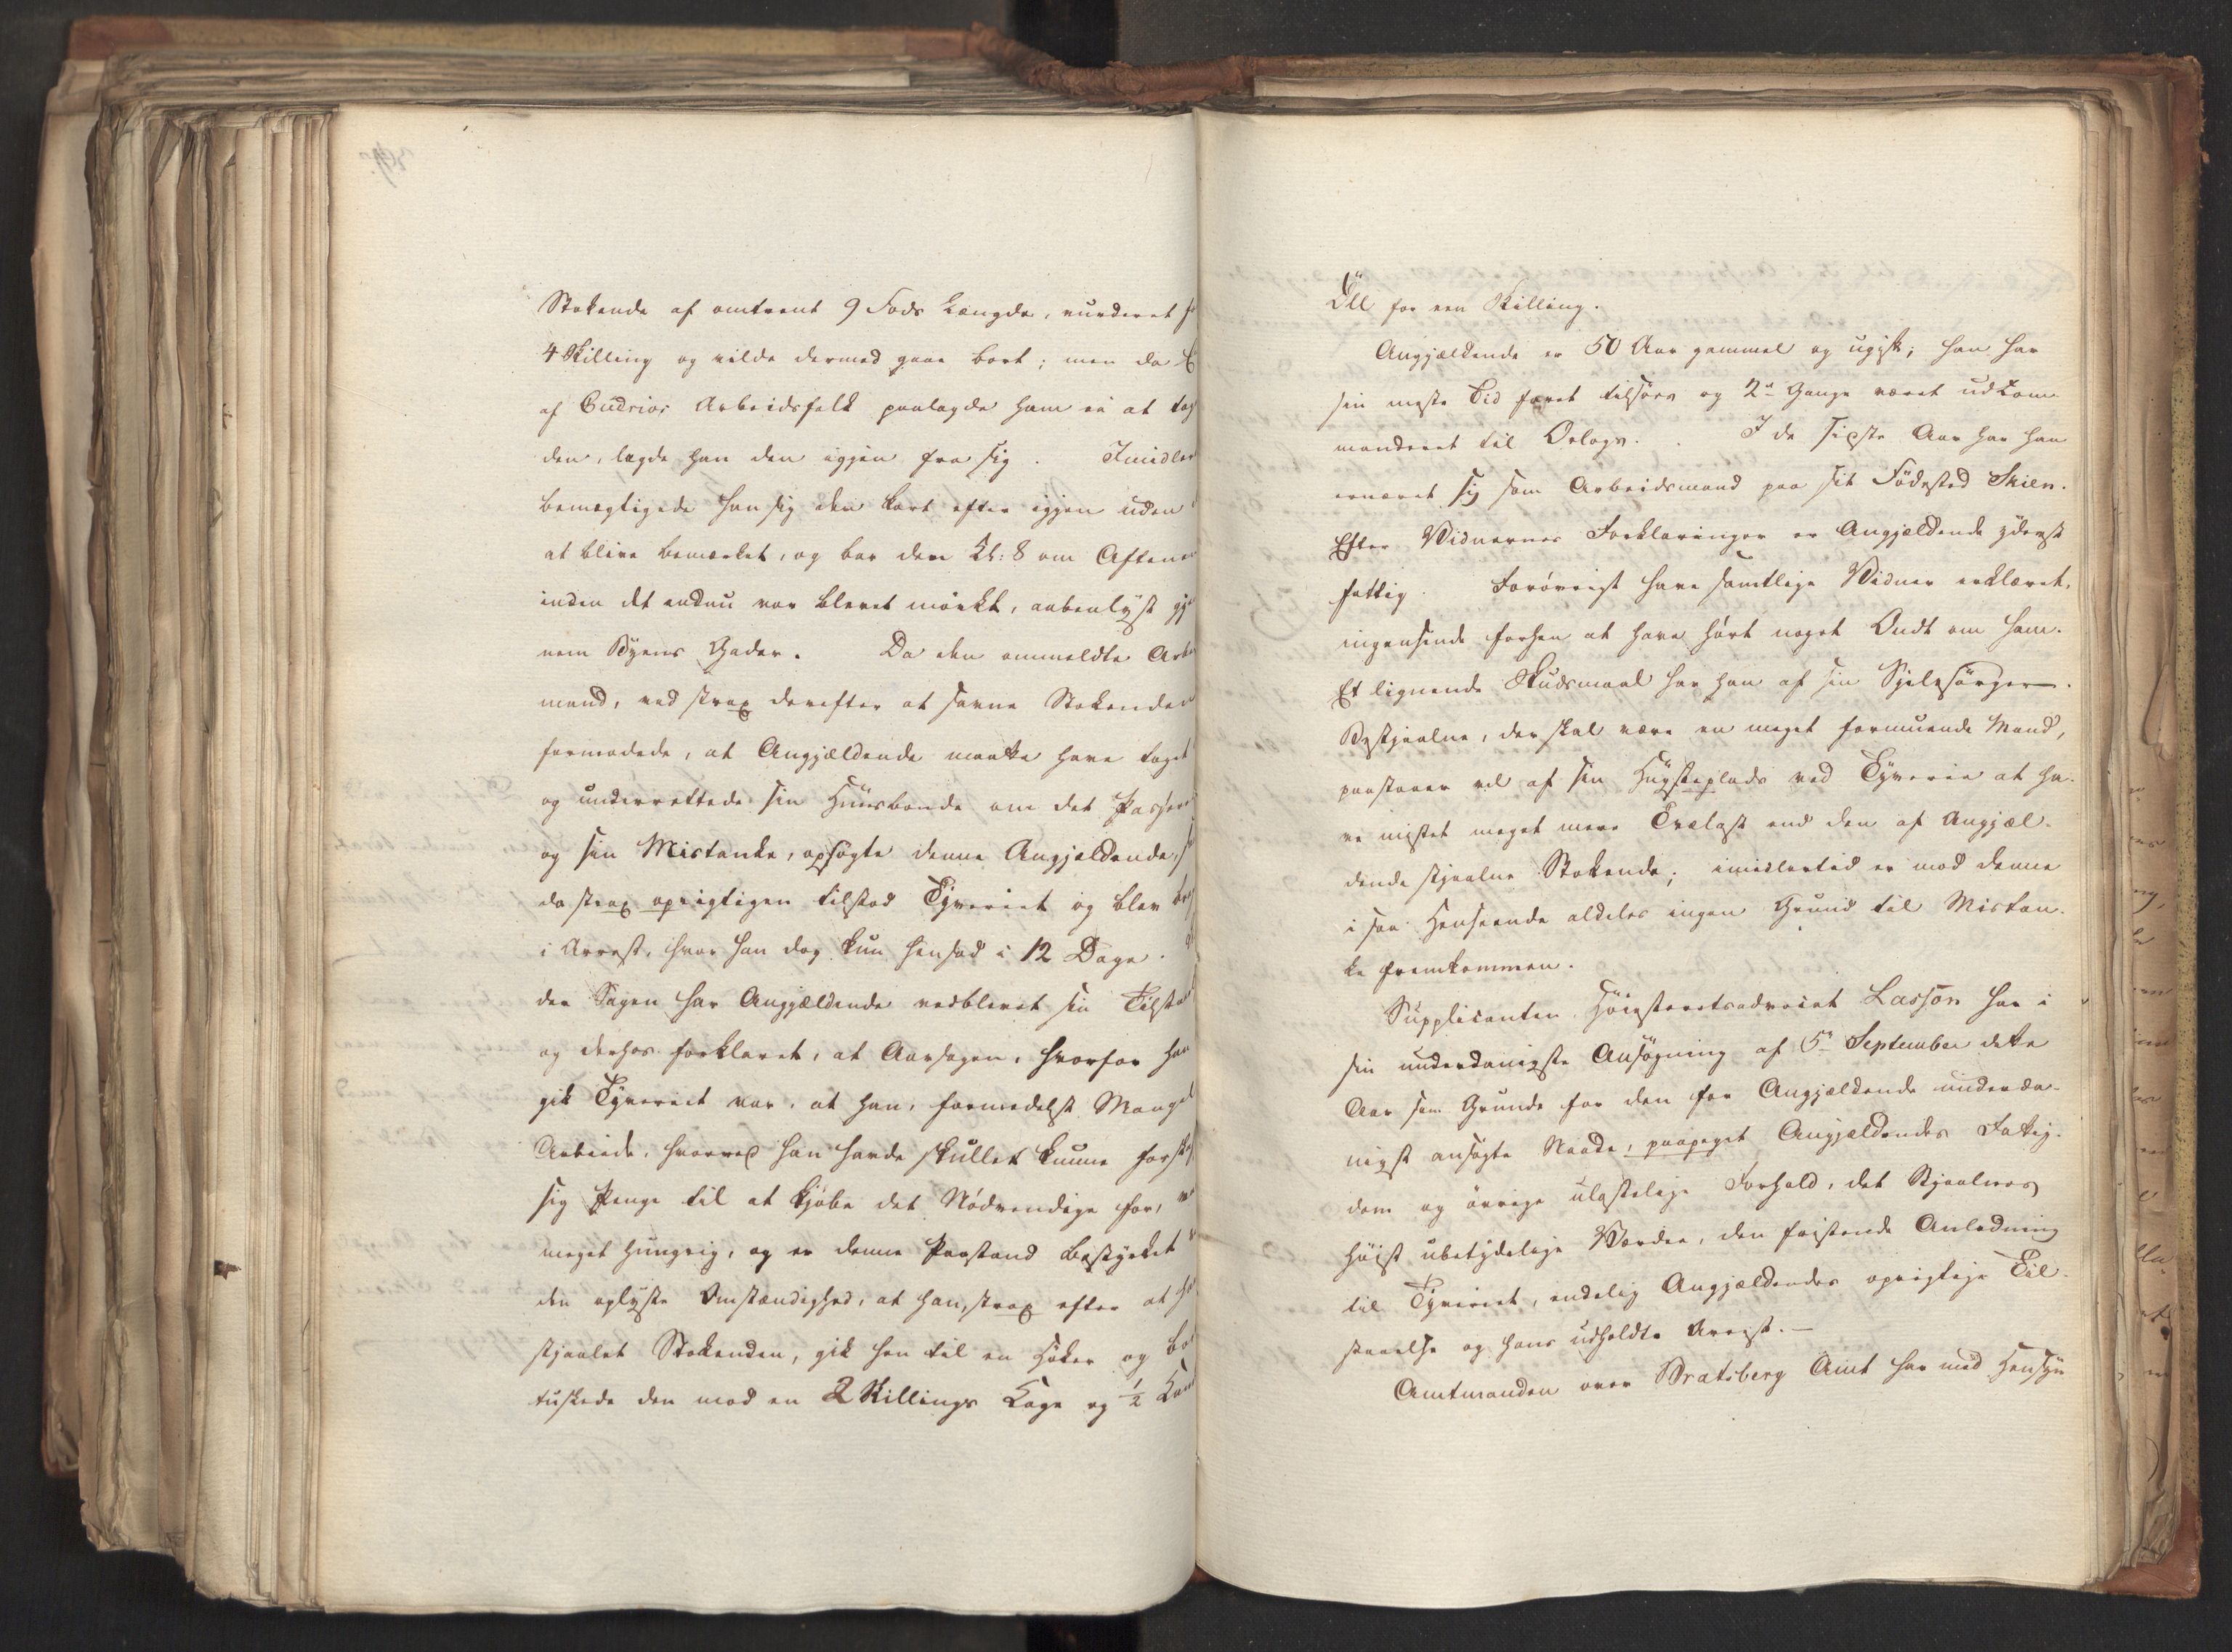 Stokende af omtrent 9 Fods Længde, vurderet
4 Skilling og vilde dermed gaae bort; men da
af Cudrios Arbeidsfolk paalagde ham ei at tag
den, lagde han den igjen fra sig. Imidler
bemægtigede han sig den kort efter igjen uden
at blive bemærket, og bar den Kl: 8 om Aftenen
inden det endnu var blevet mørkt, aabenlyst gje
nem Byens Gader. Da den ommeldte Arbe
mand, ved strax derefter at savne Stokenden
formodede, at Angjældende maatte have taget
og underrettede sin Huusbonde om det Passere
og sin Mistanke, opsøgte denne Angjældende,
da strax oprigtigen tilstod Tyveriet og blev
i Arrest, hvor han dog kun hensad i 12 Dage.
der Sagen har Angjældende vedblevet sin Tilsta
og derhos forklaret, at Aarsagen, hvorfor han
gik Tyveriet var, at han, formedelst Mangel
Arbeide, hvorved han havde skullet kunne forsk
sig Penge til at kjøbe det Nødvendige for,
meget hungrig, og er denne Paastand bestyrket
den oplyste Omstændighed, at han, strax efter at
stjaalet Stokenden, gik hen til en Høker og
tuskede den mod en 2 Skillings Kage og ½ Kan
Öll for een Skilling.
Angjældende er 50 Aar gammel og ugift; han har
sin meste Tid faret tilsøes og 2de Gange været udkom
manderet til Orlogs. I de sidste Aar har han
ernæret sig som Arbeidsmand paa sit Födested Skien.
Efter Vidnernes Forklaringer er Angjældende yderst
fattig. Forøvrigt have samtlige Vidner erklæret,
ingensinde forhen at have hørt noget Ondt om ham.
Et lignende Skudsmaal har han af sin Sjelesörger.
Bestjaalne, der skal være en meget formuende Mand,
paastaaer vel af sin Huusteplads ved Tyverie at ha-
ve mistet meget mere Trælast end den af Angjæl-
dende stjaalne Stokende; imidlertid er mod denne
i saa Henseende aldeles ingen Grund til Mistan-
ke fremkommen.
Supplicanten Höiesteretsadvocat Lasson har i
sin underdanigste Ansøgning af 5te September dette
Aar som Grunde for den for Angjældende underda-
nigst ansøgte Naade, paapeget Angjældendes Fattig-
dom og övrige ulastelige Forhold, det Stjaalnes
höist ubetydelige Værdie, den fristende Anledning
til Tyveriet, endelig Angjældendes oprigtige Til-
staaelse og hans udholdte Arrest.—
Amtmanden over Bratsberg Amt har med Hensyn